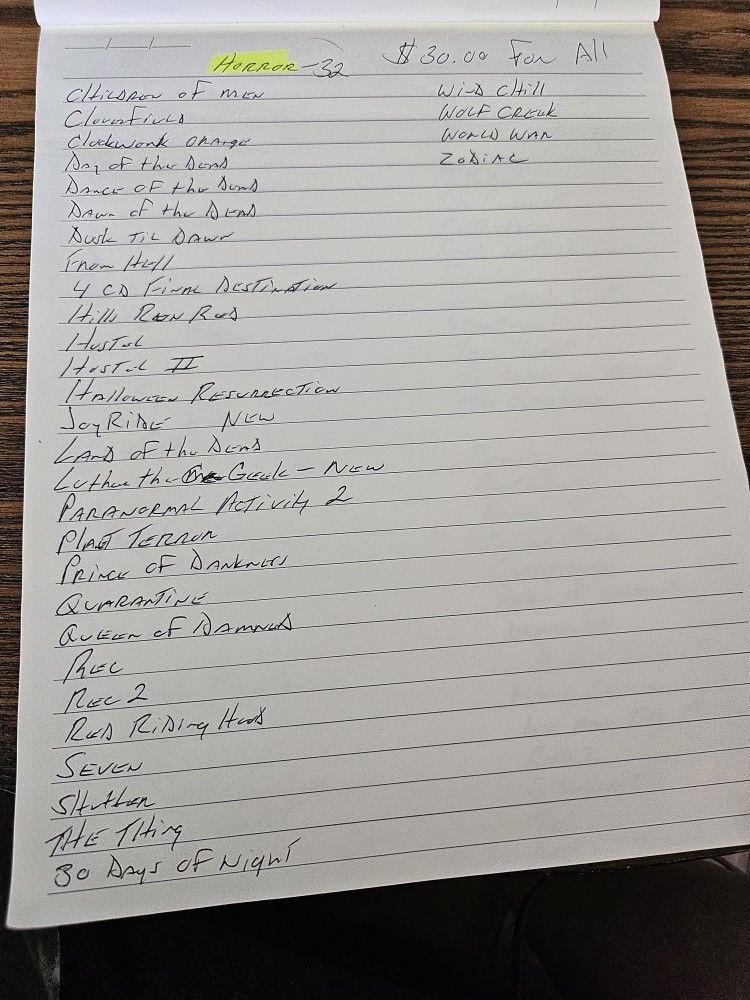 HORROR - 32 $30.00 For All
CHildren of men
Cloverfield
Clockwork orange
Day of the Dead
Dance of the Dead
Dawn of the Dead
Dusk Til Dawn
From Hell
4 CD Final Destination
Hills Run Red
Hostel
Hostel II
Halloween Resurrection
Joy Ride New
Land of the Dead
Luther the Geek - New
Paranormal Activity 2
Planet Terror
Prince of Darkness
Quarantine
Queen of Damned
Rec
Rec 2
Red Riding Hood
Seven
Shutter
THE THing
30 Days of Night
Wind CHill
Wolf Creek
World War
Zodiac